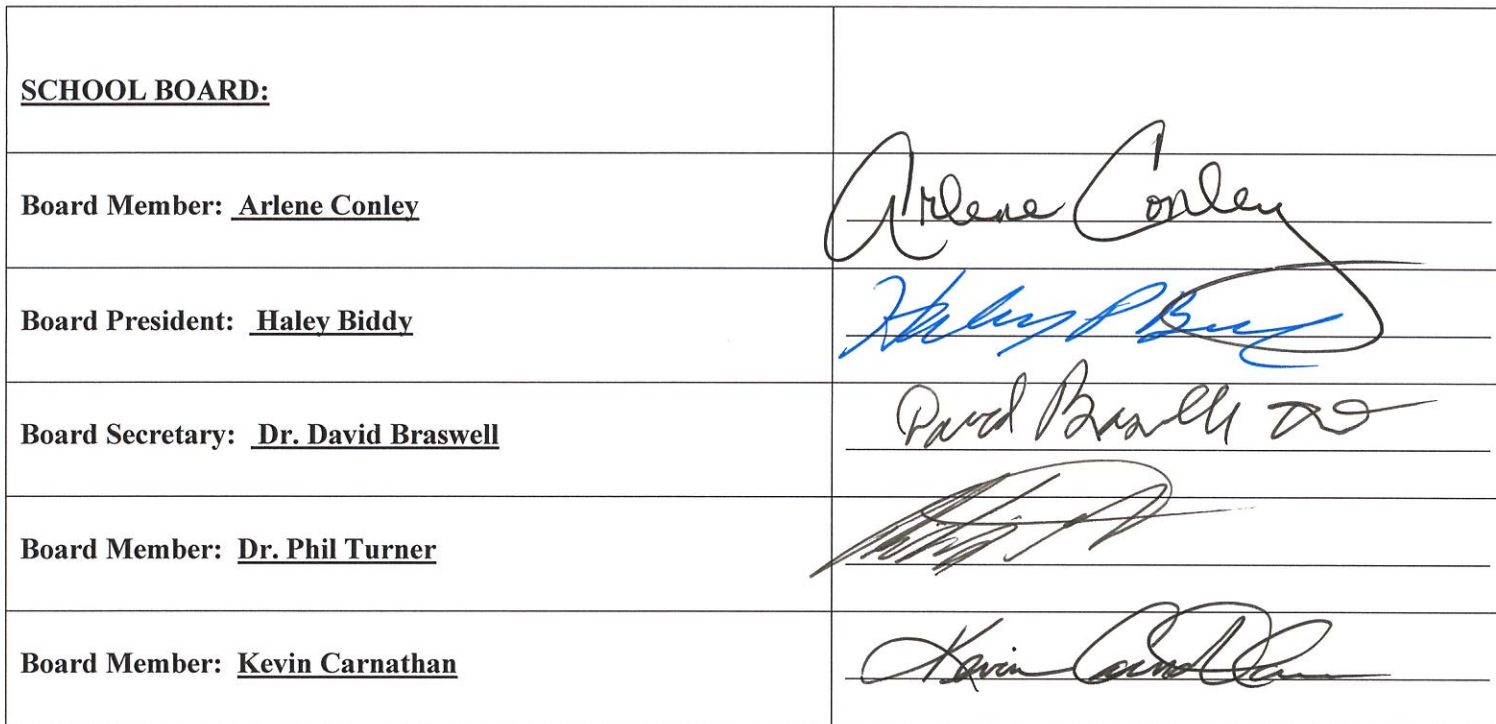 SCHOOL BOARD:
Board Member: Arlene Conley
Arlene Conley
Board President: Haley Biddy
Haley P
Board Secretary: Dr. David Braswell
David Braswell
Board Member: Dr. Phil Turner
Board Member: Kevin Carnathan
Kevin